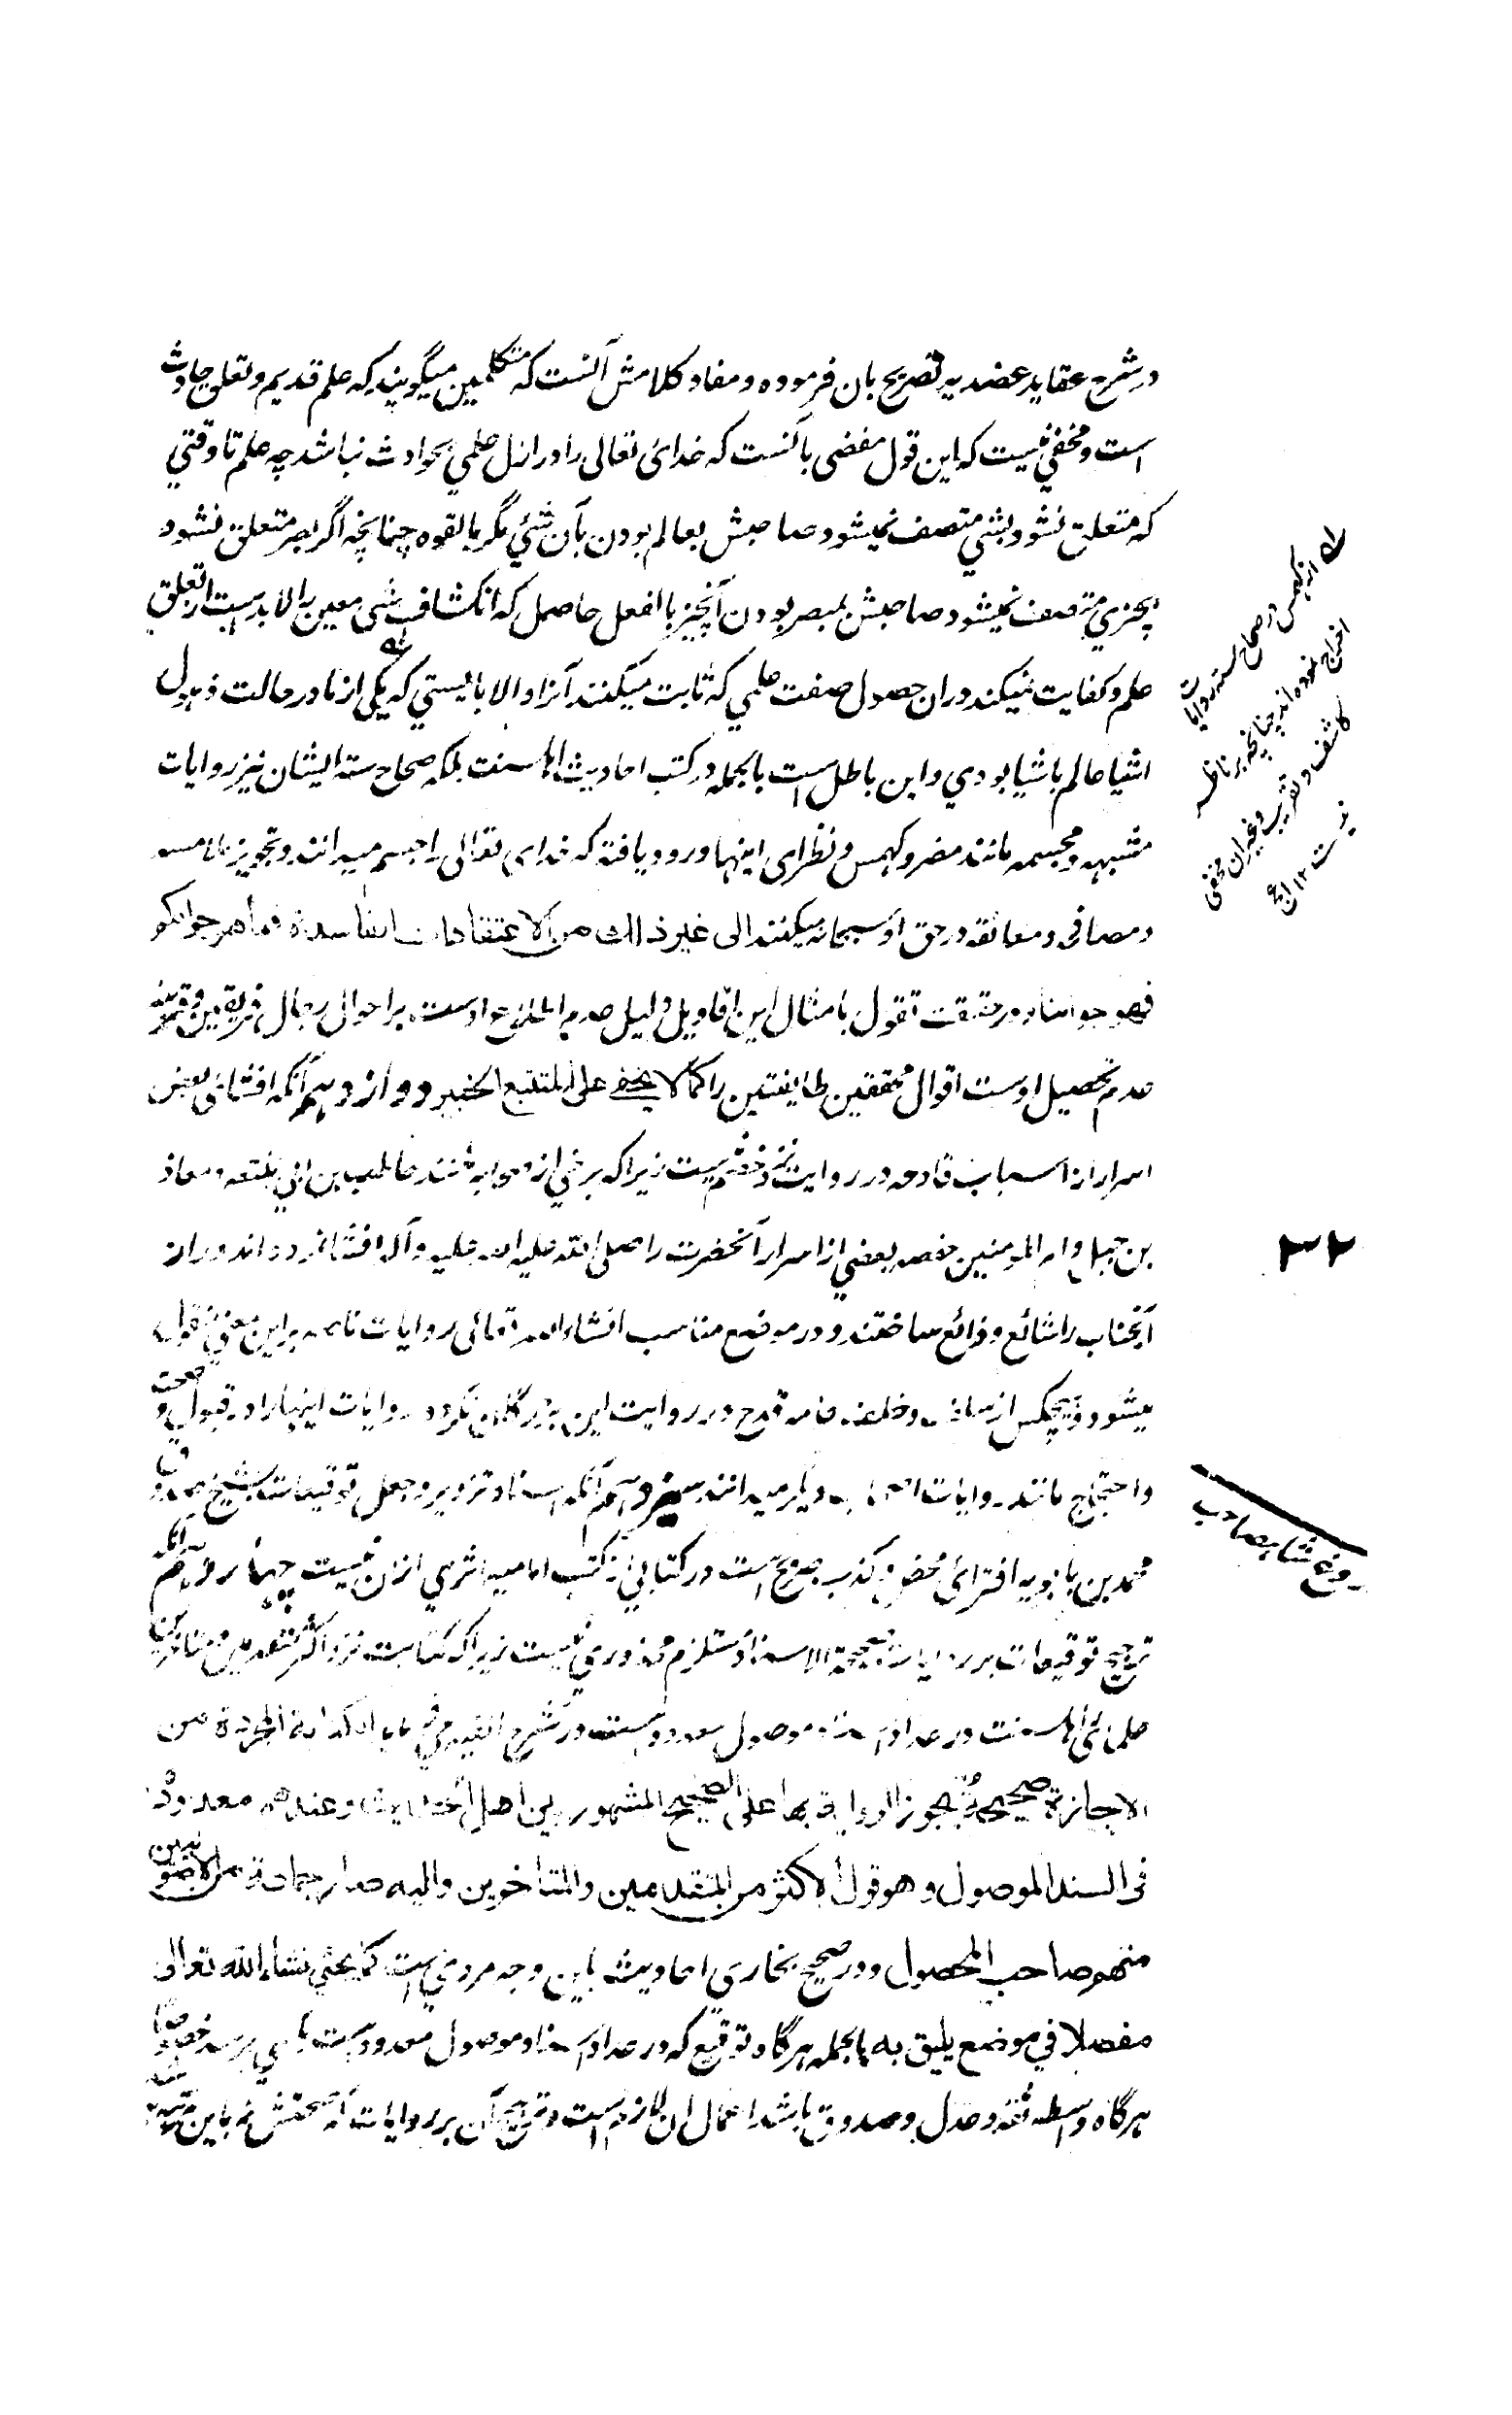 در شرح عقاید عضدیه تصریح بان فرموده و مفاد کلامش آنست که متکلمین میگویند که علم قدیم و تعلق حادث
است و مخفی نیست که این قول مفضی بآنست که خدای تعالی را در ازل علمی بحوادث نباشد چه علم تا وقتی
که متعلق نشود بشئی متصف نمیشود صاحبش بعالم بودن بآن شئی مگر بالقوه چنانچه اگر بصر متعلق نشود
بچیزی متصف نمیشود صاحبش بمبصر بودن آنچیز بالفعل حاصل که انکشاف شی معین را لابدست از تعلق
علم و کفایت نمیکند در ان حصول صفت علمی که ثابت میکنند آنرا و الا بایستی که یکی از ما در حالت ذهول
اشیا عالم باشیا بودی و این باطل است بالجمله در کتب احادیث اهل سنت بلکه صحاح سته ایشان نیز روایات
مشبهه و مجسمه مانند مضر و کهمس و نظرای اینها ورود یافته که خدای تعالی را جسم میدانند و تجویز ملامسه
و مصافحه و معانقه در حق او سبحانه میکنند الی غیر ذلک من الاعتقادات الفاسدة فما هو جوابکم
فهو جوابنا و در حقیقت تفول بامثال این اقاویل دلیل عدم اطلاع اوست بر احوال رجال فریقین و قرینه
عدم تحصیل اوست اقوال محققین طایفتین را کما لا یخفی علی المتتبع الخبیر دوازدهم آنکه افشای بعض
اسرار از اسباب قادحه در روایت نزد خصم نیست زیرا که برخی از صحابه مانند حاطب بن ابی بلتعه و معاذ
بن جبل و ام المومنین حفصه بعضی از اسرار آنحضرت را صلی الله علیه و آله افشا کرده اند و راز
آنجناب را شائع و ذائع ساختند و در موضع مناسب انشاء الله تعالی روایات ناصه بر این معنی منقول
میشود و هیچکس از سلف و خلف عامه قدح در روایت این بزرگان نکرده روایات اینها را در قبول و صحت
و احتجاج مانند روایات اصحاب دیگر میدانند سیزدهم آنکه اسناد تزویر و جعل توقیعات بشیخ صدوق
محمد بن بابویه افترای محض و کذب صریح است در کتابی از کتب امامیه اثری ازان نیست چهاردهم آنکه
ترجیح توقیعات بر روایات صحیحة الاسناد مستلزم محذوری نیست زیرا که کتابت نزد اکثر متقدمین و متاخرین
علمای اهل سنت در عداد مسند موصول معدودست در شرح الفیه فی باب الکتابة المجردة من
الاجازة صحیحة تجوز الروایة بها علی الصحیح المشهور بین اهل الحدیث و عندهم معدود
فی السند الموصول و هو قول الاکثر من المتقدمین و المتاخرین و الیه صار جماعة من الاصولیین
منهم صاحب المحصول و در صحیح بخاری احادیث باین وجه مروی است کما یجئ انشاء الله تعالی
مفصلا فی موضع یلیق به بالجمله هرگاه توقیع که در عداد مسند موصول معدودست بکسی برسد خصوصا
هرگاه واسطه ثقه و عدل و صدوق باشد اعمال ان لازم است و ترجیح آن بر روایات که صحتش نه باین
ای از کهمس در صحاح سته روایات
اخراج نموده اند چنانچه بر ناظر
کاشف و تقریب و غیران مخفی
نیست ۱۲
۳۲
دروغ شاه صاحب